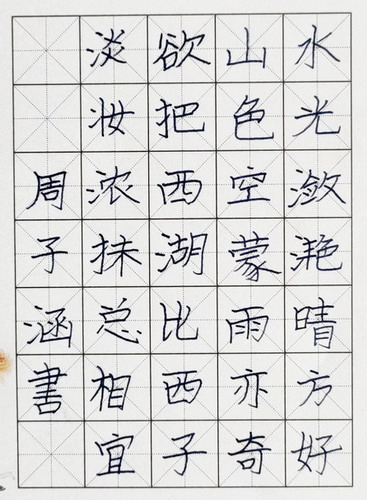 水光潋滟晴方好
山色空蒙雨亦奇
欲把西湖比西子
淡妆浓抹总相宜
周子涵書